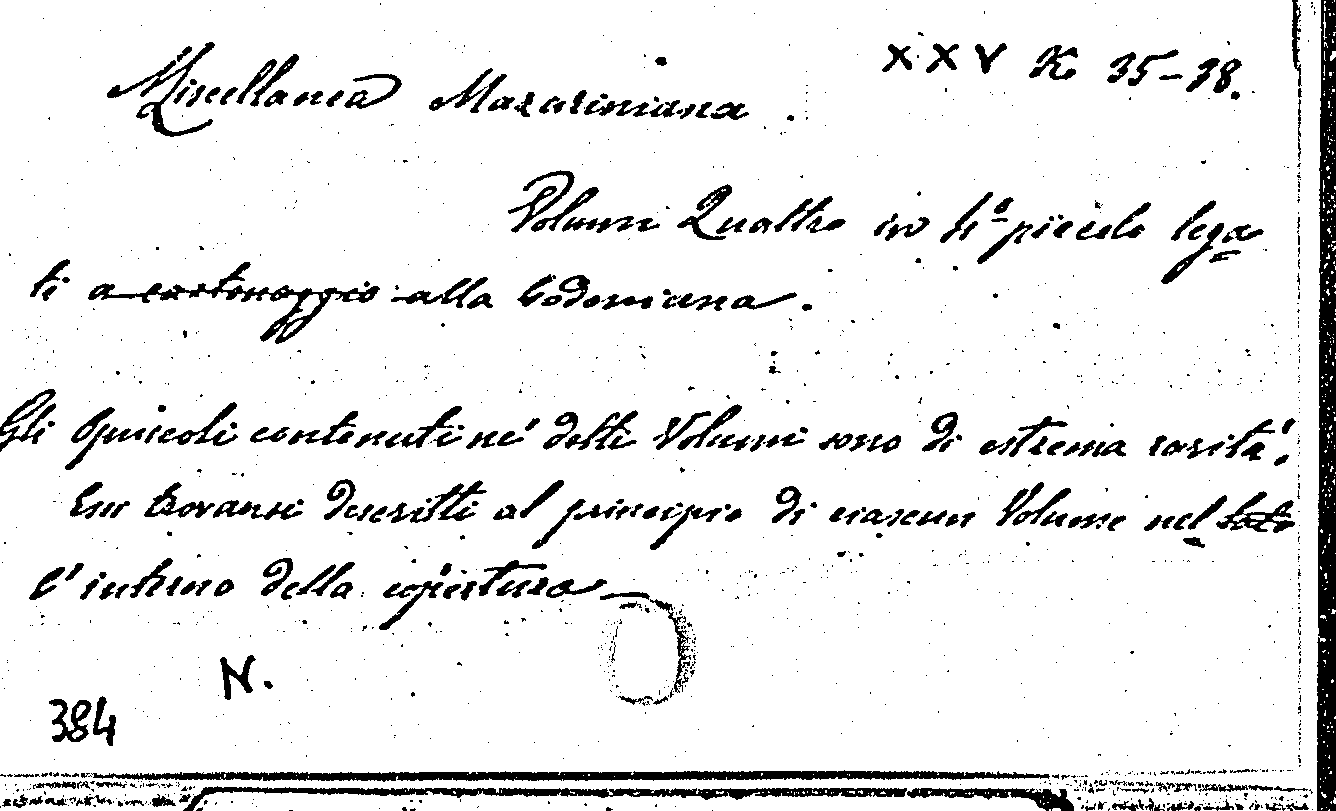 XXV K. 35-38.
Miscellanea Mazariniana.
Volumi Quattro in 4° piccolo lega=
ti a cartonaggio alla Bodoniana.
Gli Opuscoli contenuti ne' detti Volumi sono di estrema rarità.
trovansi descritti al principio di ciascun Volume nel
l'interno della copertura—
N.
384